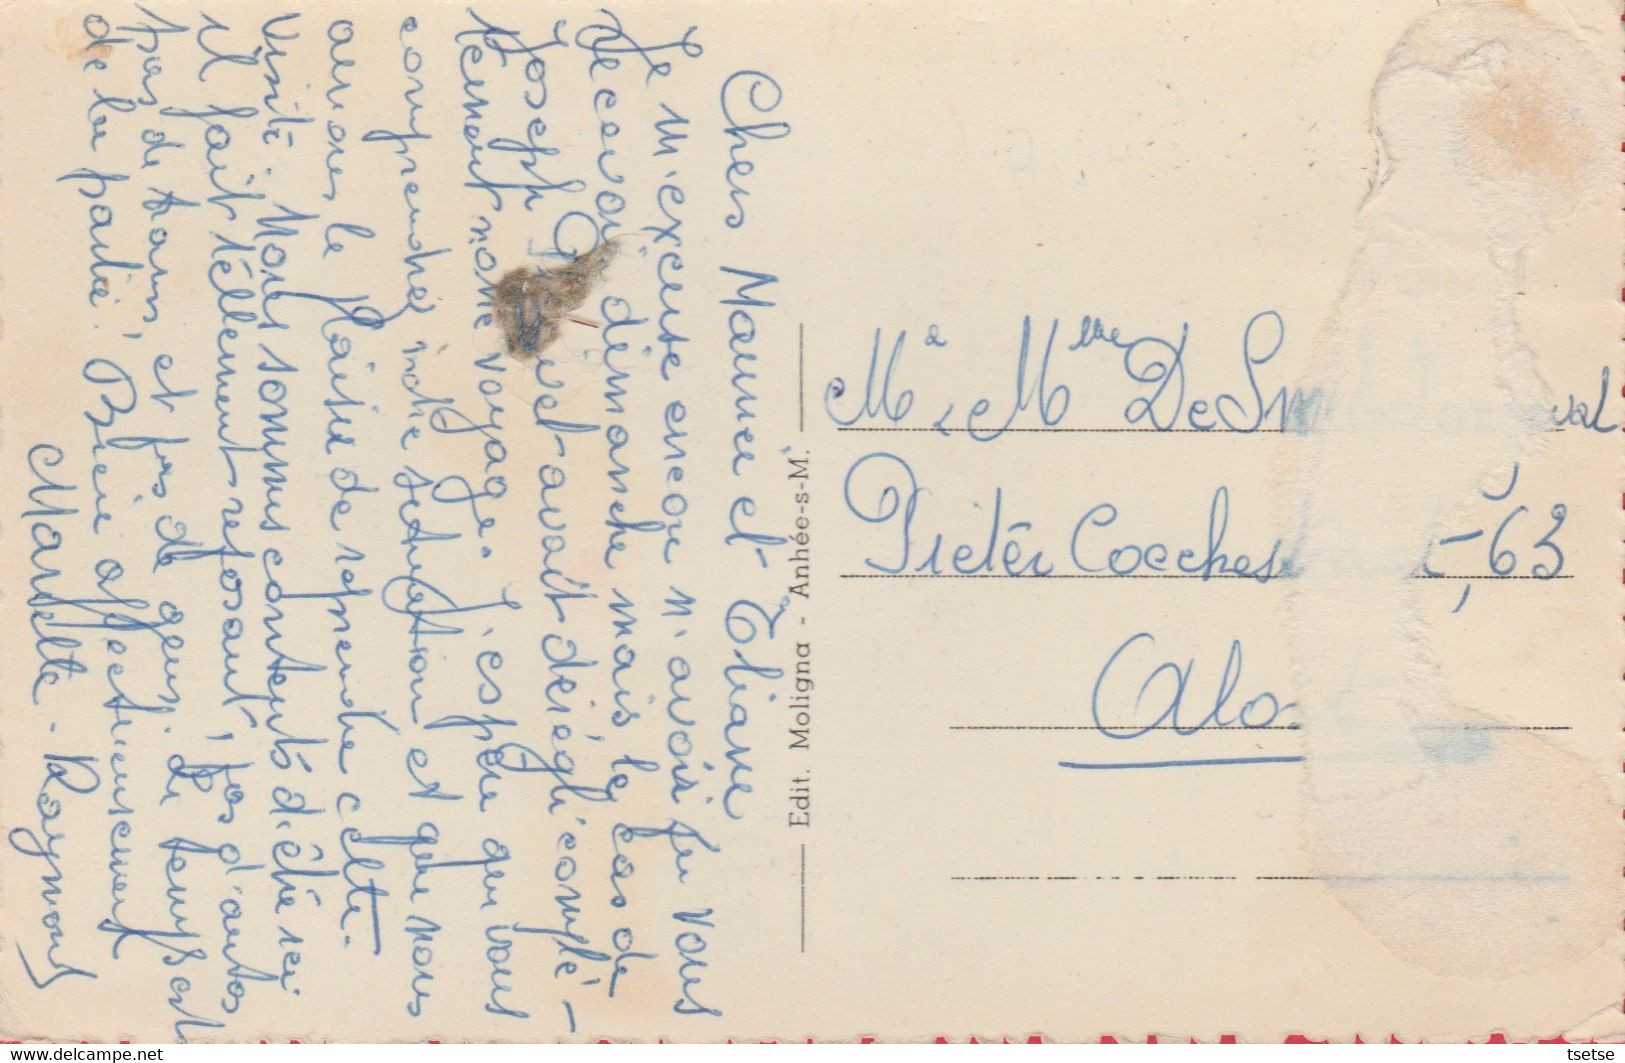 Chers Maurice et Eliane
Je m'excuse encore n'avoir pu vous
recevoir dimanche mais le cas de
Joseph avait déréglé complè-
tement notre voyage. J'espère que vous
comprendrez notre situation et que nous
aurons le plaisir de reprendre cette
visite. Nous sommes contents d'être ici
il fait tellement reposant, pas d'autos
pas de trams, et pas de gens. Le temps est
de la partie. Bien affectueusement
Marcelle - Raymond
Edit. Moligna - Anhée-s-M.
Mr & Mme De Sm val
Pieter Coeckes 63
Alo
tsetse